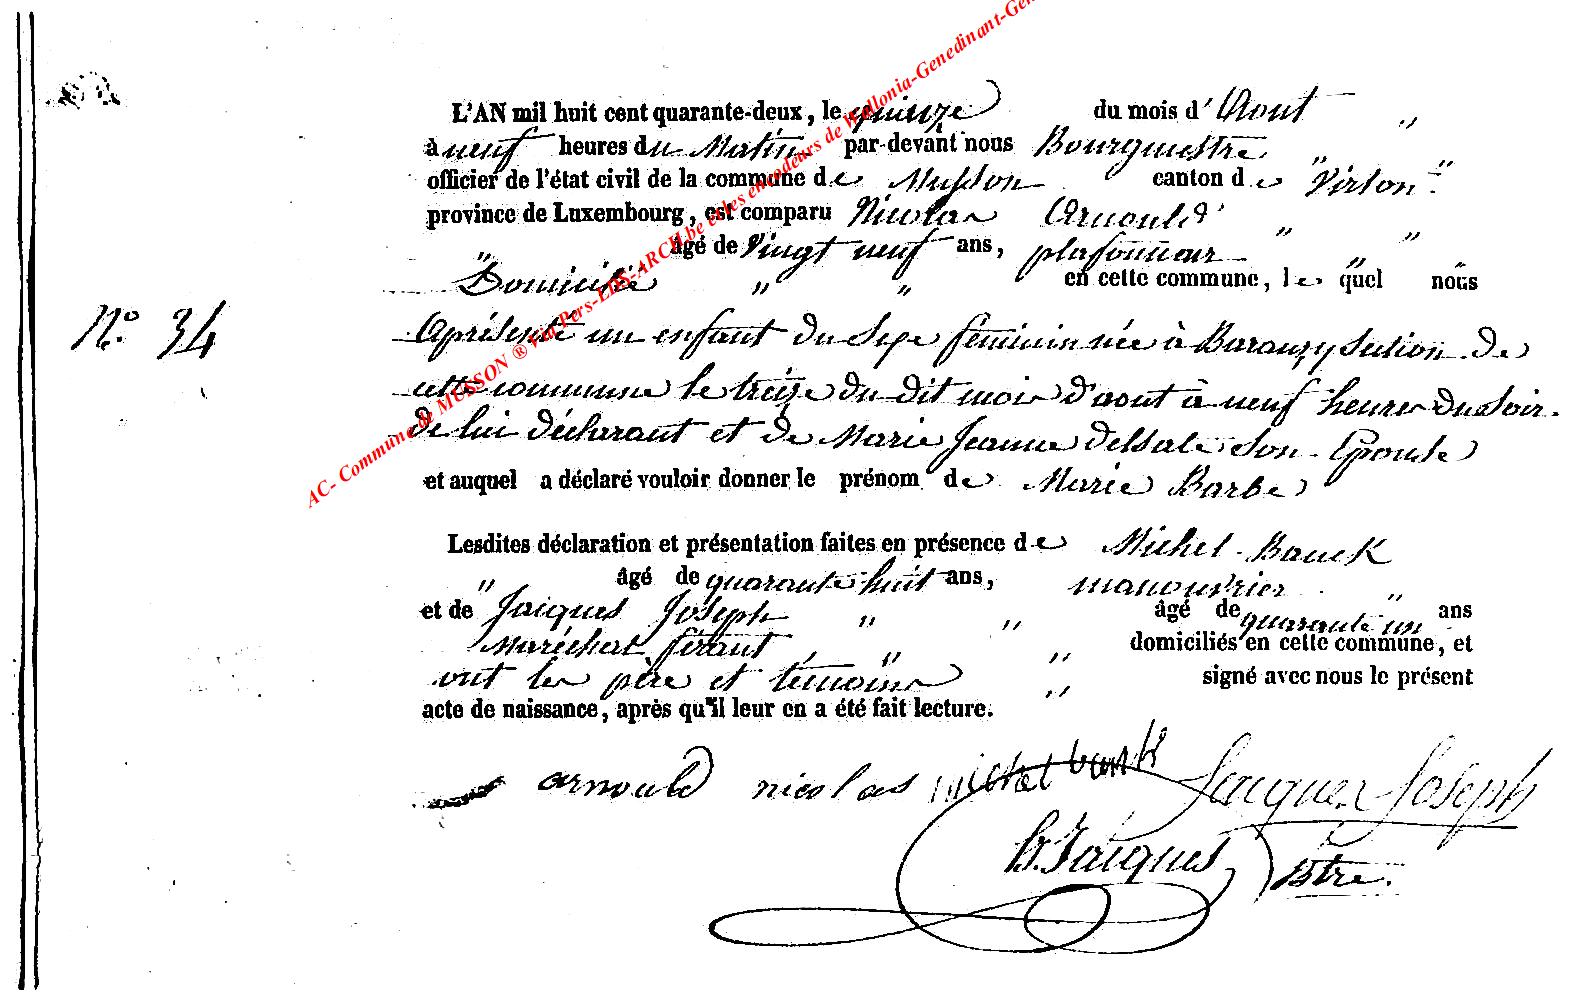 L'AN mil huit cent quarante-deux, le quinze du mois d'Aout "
à neuf heures du Matin par-devant nous Bourgmestre
officier de l'état civil de la commune de Musson canton de "Virton".
province de Luxembourg, est comparu Nicolas Arnould
" âgé de Vingt neuf ans, plafonneur " "
Domicilié " " en cette commune, le quel nous
N.o 34
aprésenté un enfant du Sexe féminin née à Baranzy Section de
cette commune le treize du dit mois d'aout à neuf heures du Soir.
de lui déclarant et de Marie Jeanne Delsate Son Epouse
et auquel a déclaré vouloir donner le prénom de Marie Barbe
Lesdites déclaration et présentation faites en présence de Michel Bauck
" âgé de quarante huit ans, manouvrier "
et de Jacques Joseph " " âgé de quarante un ans
Maréchal férant " " domiciliés en cette commune, et
ont les père et témoins " signé avec nous le présent
acte de naissance, après qu'il leur en a été fait lecture.
arnould nicolas michel bauck Jacques Joseph
Jacques Bstre.
AC- Commune de MUSSON ® Via Pers-EDS-ARCH.be et les encodeurs de Wallonia-Genedinant-Gen